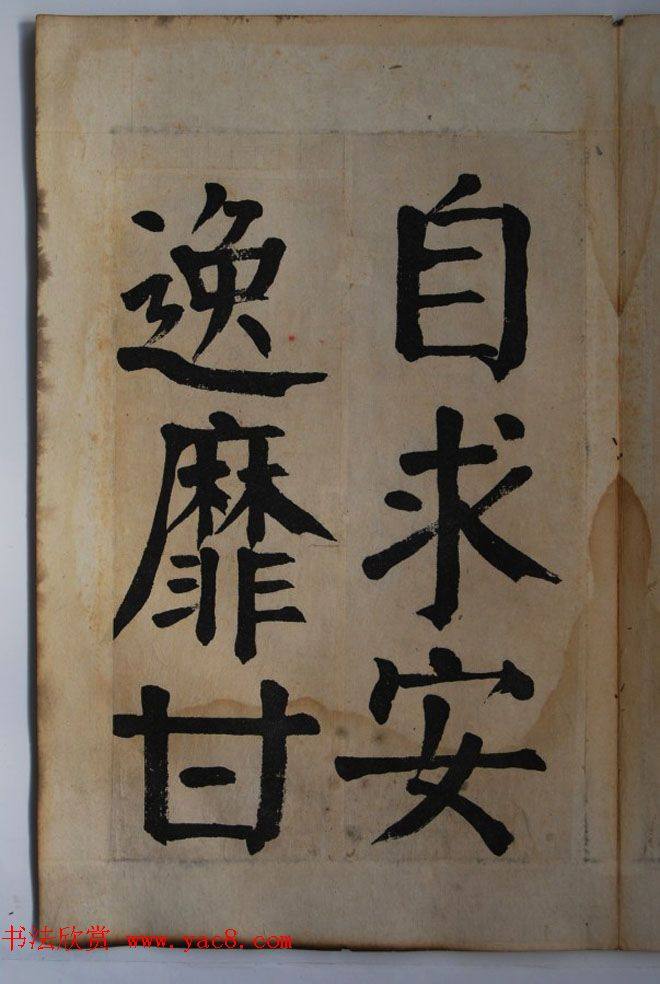 自求安
逸靡甘
书法欣赏 www.yac8.com